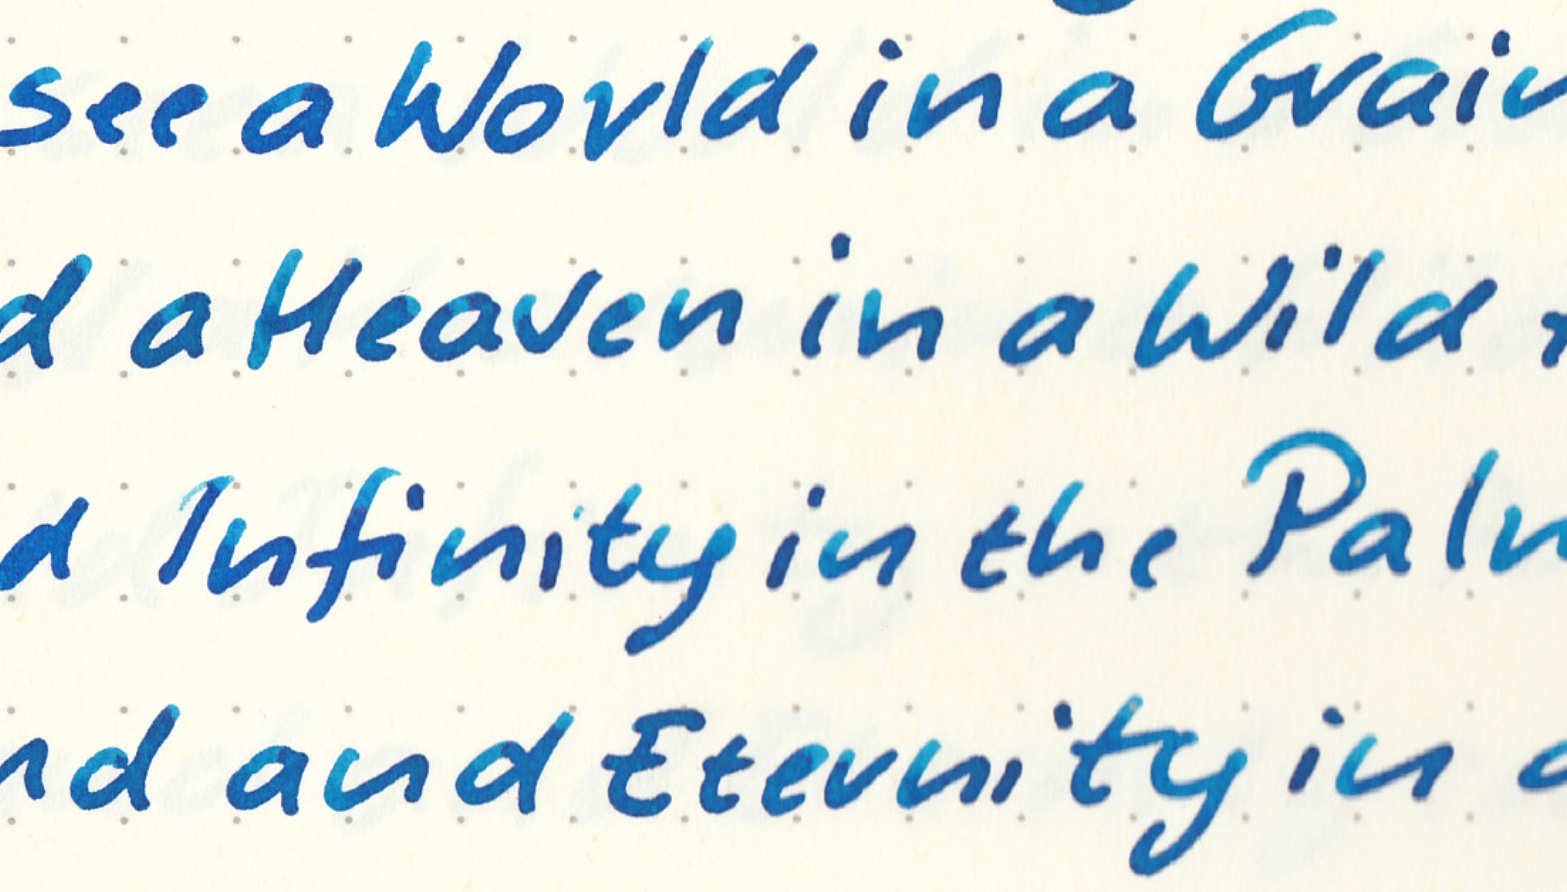 see a World in a Grain
d a Heaven in a Wild
d Infinity in the Palm
nd and Eternity in a